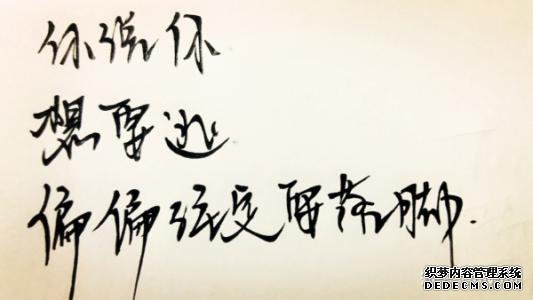 你说你
想要逃
偏偏注定要落脚.
织梦内容管理系统
DEDECMS.COM